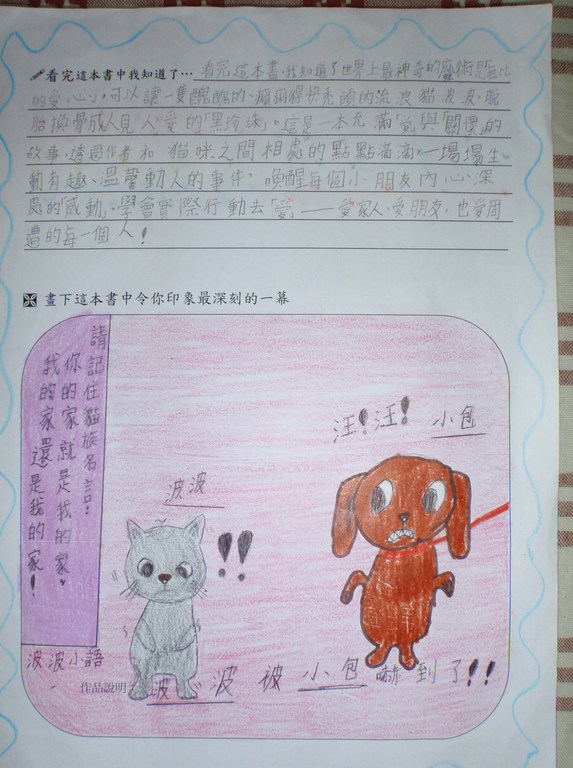 看完這本書中我知道了… 看完這本書,我知道了世界上最神奇的魔術是無比
的愛心,可以讓一隻醜醜的、癩痢得快禿頭的流浪貓波波,脫
胎換骨成人見人愛的「黑珍珠」。這是一本充滿「愛」與「關懷」的
故事,透過作者和貓咪之間相處的點點滴滴,一場場生
動有趣、溫馨動人的事件,喚醒每個小朋友內心深
處的「感動」,學會實際行動去「愛」——愛家人、愛朋友,也愛周
遭的每一個人!
畫下這本書中令你印象最深刻的一幕
請記住貓族名言:
你的家就是我的家,
我的家還是我的家!
波波小語
汪!汪! 小包
波波 !!
作品說明: 波波被小包嚇到了!!